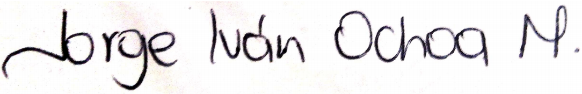 Jorge Iván Ochoa M.